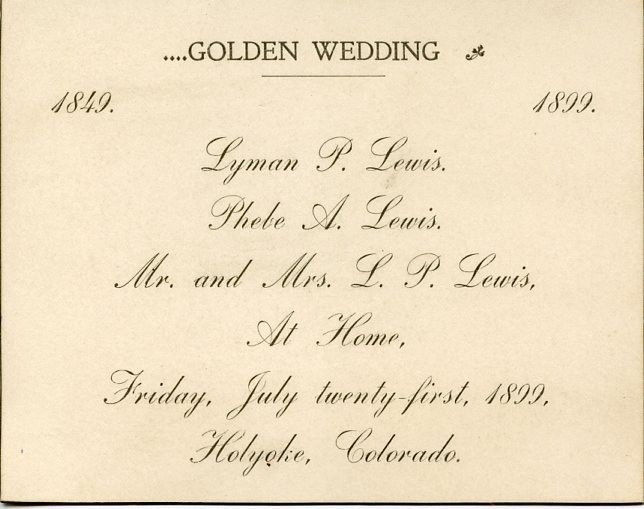 ....GOLDEN WEDDING
1849. 1899.
Lyman P. Lewis.
Phebe A. Lewis.
Mr. and Mrs. L. P. Lewis,
At Home,
Friday, July twenty-first, 1899,
Holyoke, Colorado.